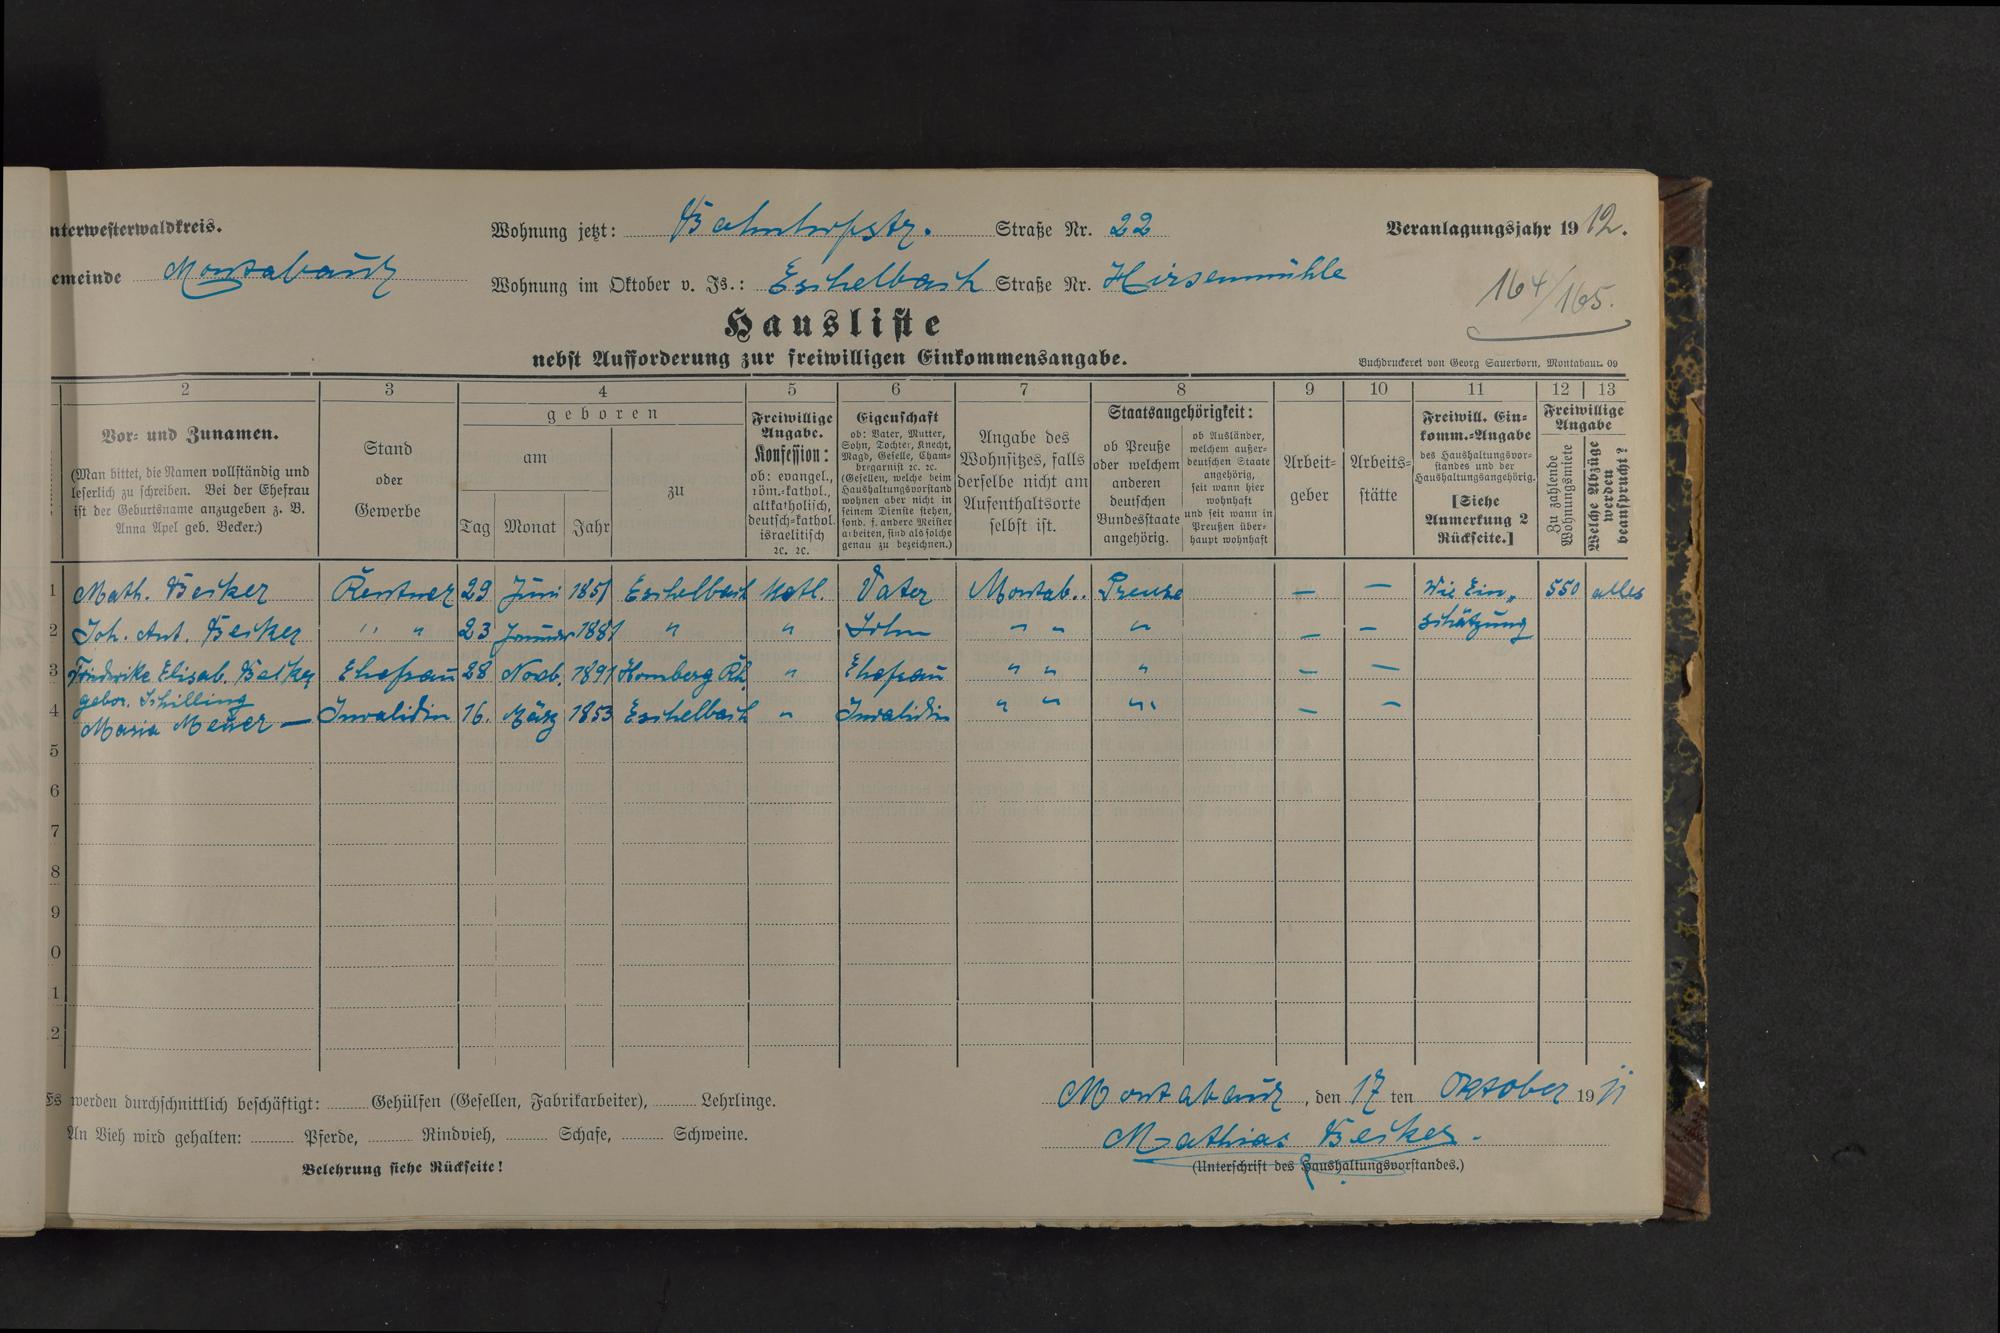 nterwesterwaldkreis.
Wohnung jetzt: Bahnhofstr. Straße Nr. 22
Veranlagungsjahr 1912.
emeinde Montabaur
Wohnung im Oktober v. Js.: Eschelbach Straße Nr. Hirsenmühle
164/165.
Hausliste
nebst Aufforderung zur freiwilligen Einkommensangabe.
Buchdruckerei von Georg Sauerborn, Montabaur. 09
2 3 4 5 6 7 8 9 10 11 12 13
Vor- und Zunamen.
(Man bittet, die Namen vollständig und
leserlich zu schreiben. Bei der Ehefrau
ist der Geburtsname anzugeben z. B.
Anna Apel geb. Becker.)
Stand
oder
Gewerbe
geboren
am
Tag Monat Jahr
zu
Freiwillige
Angabe.
Konfession:
ob: evangel.,
röm.-kathol.,
altkatholisch,
deutsch-kathol.
israelitisch
ꝛc. ꝛc.
Eigenschaft
ob: Vater, Mutter,
Sohn, Tochter, Knecht,
Magd, Geselle, Cham-
bregarnist ꝛc. ꝛc.
(Gesellen, welche beim
Haushaltungsvorstand
wohnen aber nicht in
seinem Dienste stehen,
sond. f. andere Meister
arbeiten, sind als solche
genau zu bezeichnen.)
Angabe des
Wohnsitzes, falls
derselbe nicht am
Aufenthaltsorte
selbst ist.
Staatsangehörigkeit:
ob Preuße
oder welchem
anderen
deutschen
Bundesstaate
angehörig.
ob Ausländer,
welchem außer-
deutschen Staate
angehörig,
seit wann hier
wohnhaft
und seit wann in
Preußen über-
haupt wohnhaft
Arbeit-
geber
Arbeits-
stätte
Freiwill. Ein-
komm.-Angabe
des Haushaltungsvor-
standes und der
Haushaltungsangehörig.
[Siehe
Anmerkung 2
Rückseite.]
Freiwillige
Angabe
Zu zahlende
Wohnungsmiete
Welche Abzüge
werden
beansprucht?
1 Math. Becker Rentner 29 Juni 1851 Eschelbach Katl. Vater Montab.. Preuße — — Wie Ein„ 550 alles
2 Joh. Ant. Becker " " 23 Januar 1881 " " Sohn " " " — — schätzung
3 Friederike Elisab. Becker Ehefrau 28 Novb. 1891 Homberg Rh. " Ehefrau " " " — —
gebor. Schilling
4 Maria Meurer — Invalidin 16. März 1853 Eschelbach " Invalidin " " " — —
5
6
7
8
9
0
1
2
Es werden durchschnittlich beschäftigt: Gehülfen (Gesellen, Fabrikarbeiter), Lehrlinge.
An Vieh wird gehalten: Pferde, Rindvieh, Schafe, Schweine.
Belehrung siehe Rückseite!
Montabaur, den 17 ten Oktober 1911
Mathias Becker.
(Unterschrift des Haushaltungsvorstandes.)